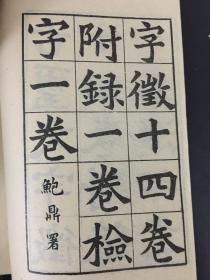 字徵十四卷
附錄一卷檢
字一卷
鮑鼎署